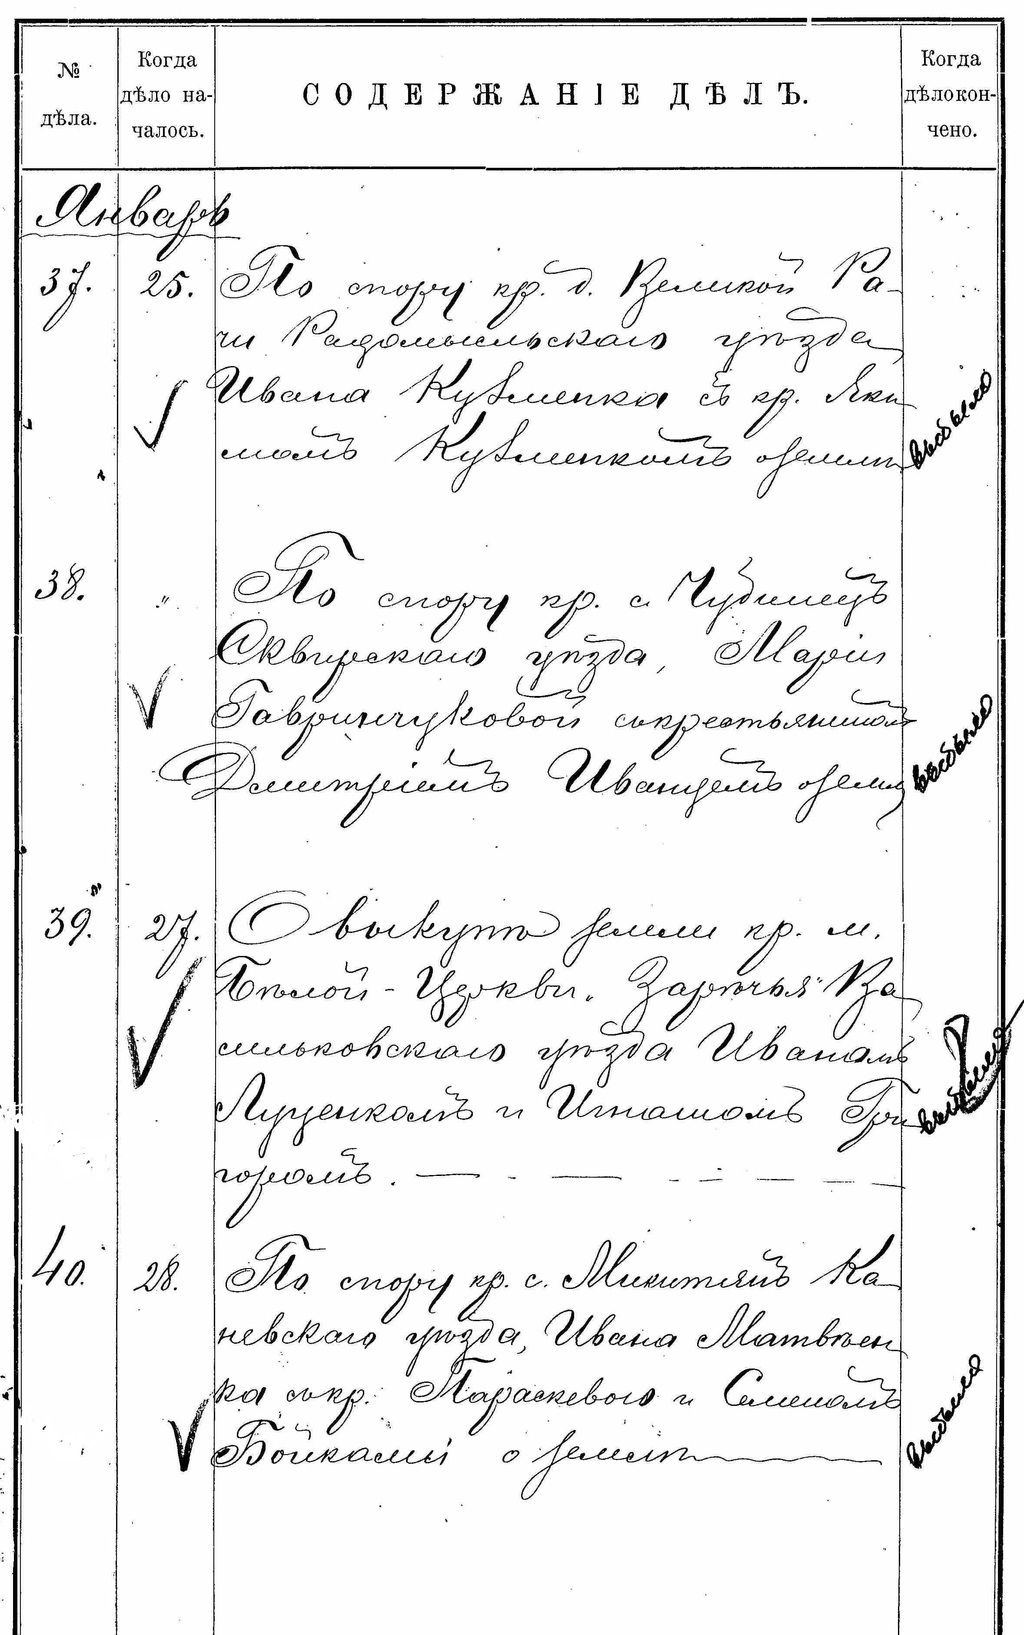 № дѣла.
Когда дѣло началось.
СОДЕРЖАНІЕ ДѢЛЪ.
Когда дѣло кончено.
Январь
37. 25. По спору кр. д. Великой Ра-
чи Радомысльскаго уѣзда
Ивана Кузменка съ кр. Яки
момъ Кузменкомъ о землѣ
выбыло
38. " По спору кр. с. Чубинецъ
Сквирскаго уѣзда, Маріи
Гавринчуковой съ крестьяниномъ
Дмитріемъ Иванцемъ о землѣ
выбыло
39. 27. О выкупѣ земли кр. м.
Бѣлой-Церкви. Зарѣчья Ва
сильковскаго уѣзда Иваномъ
Луценкомъ и Игнатомъ Гри
горомъ.
выбыло
40. 28. По спору кр. с. Микитянъ Ка
невскаго уѣзда, Ивана Матвѣен
ка съ кр. Параскевою и Семеномъ
Бойками о землѣ
выбыло